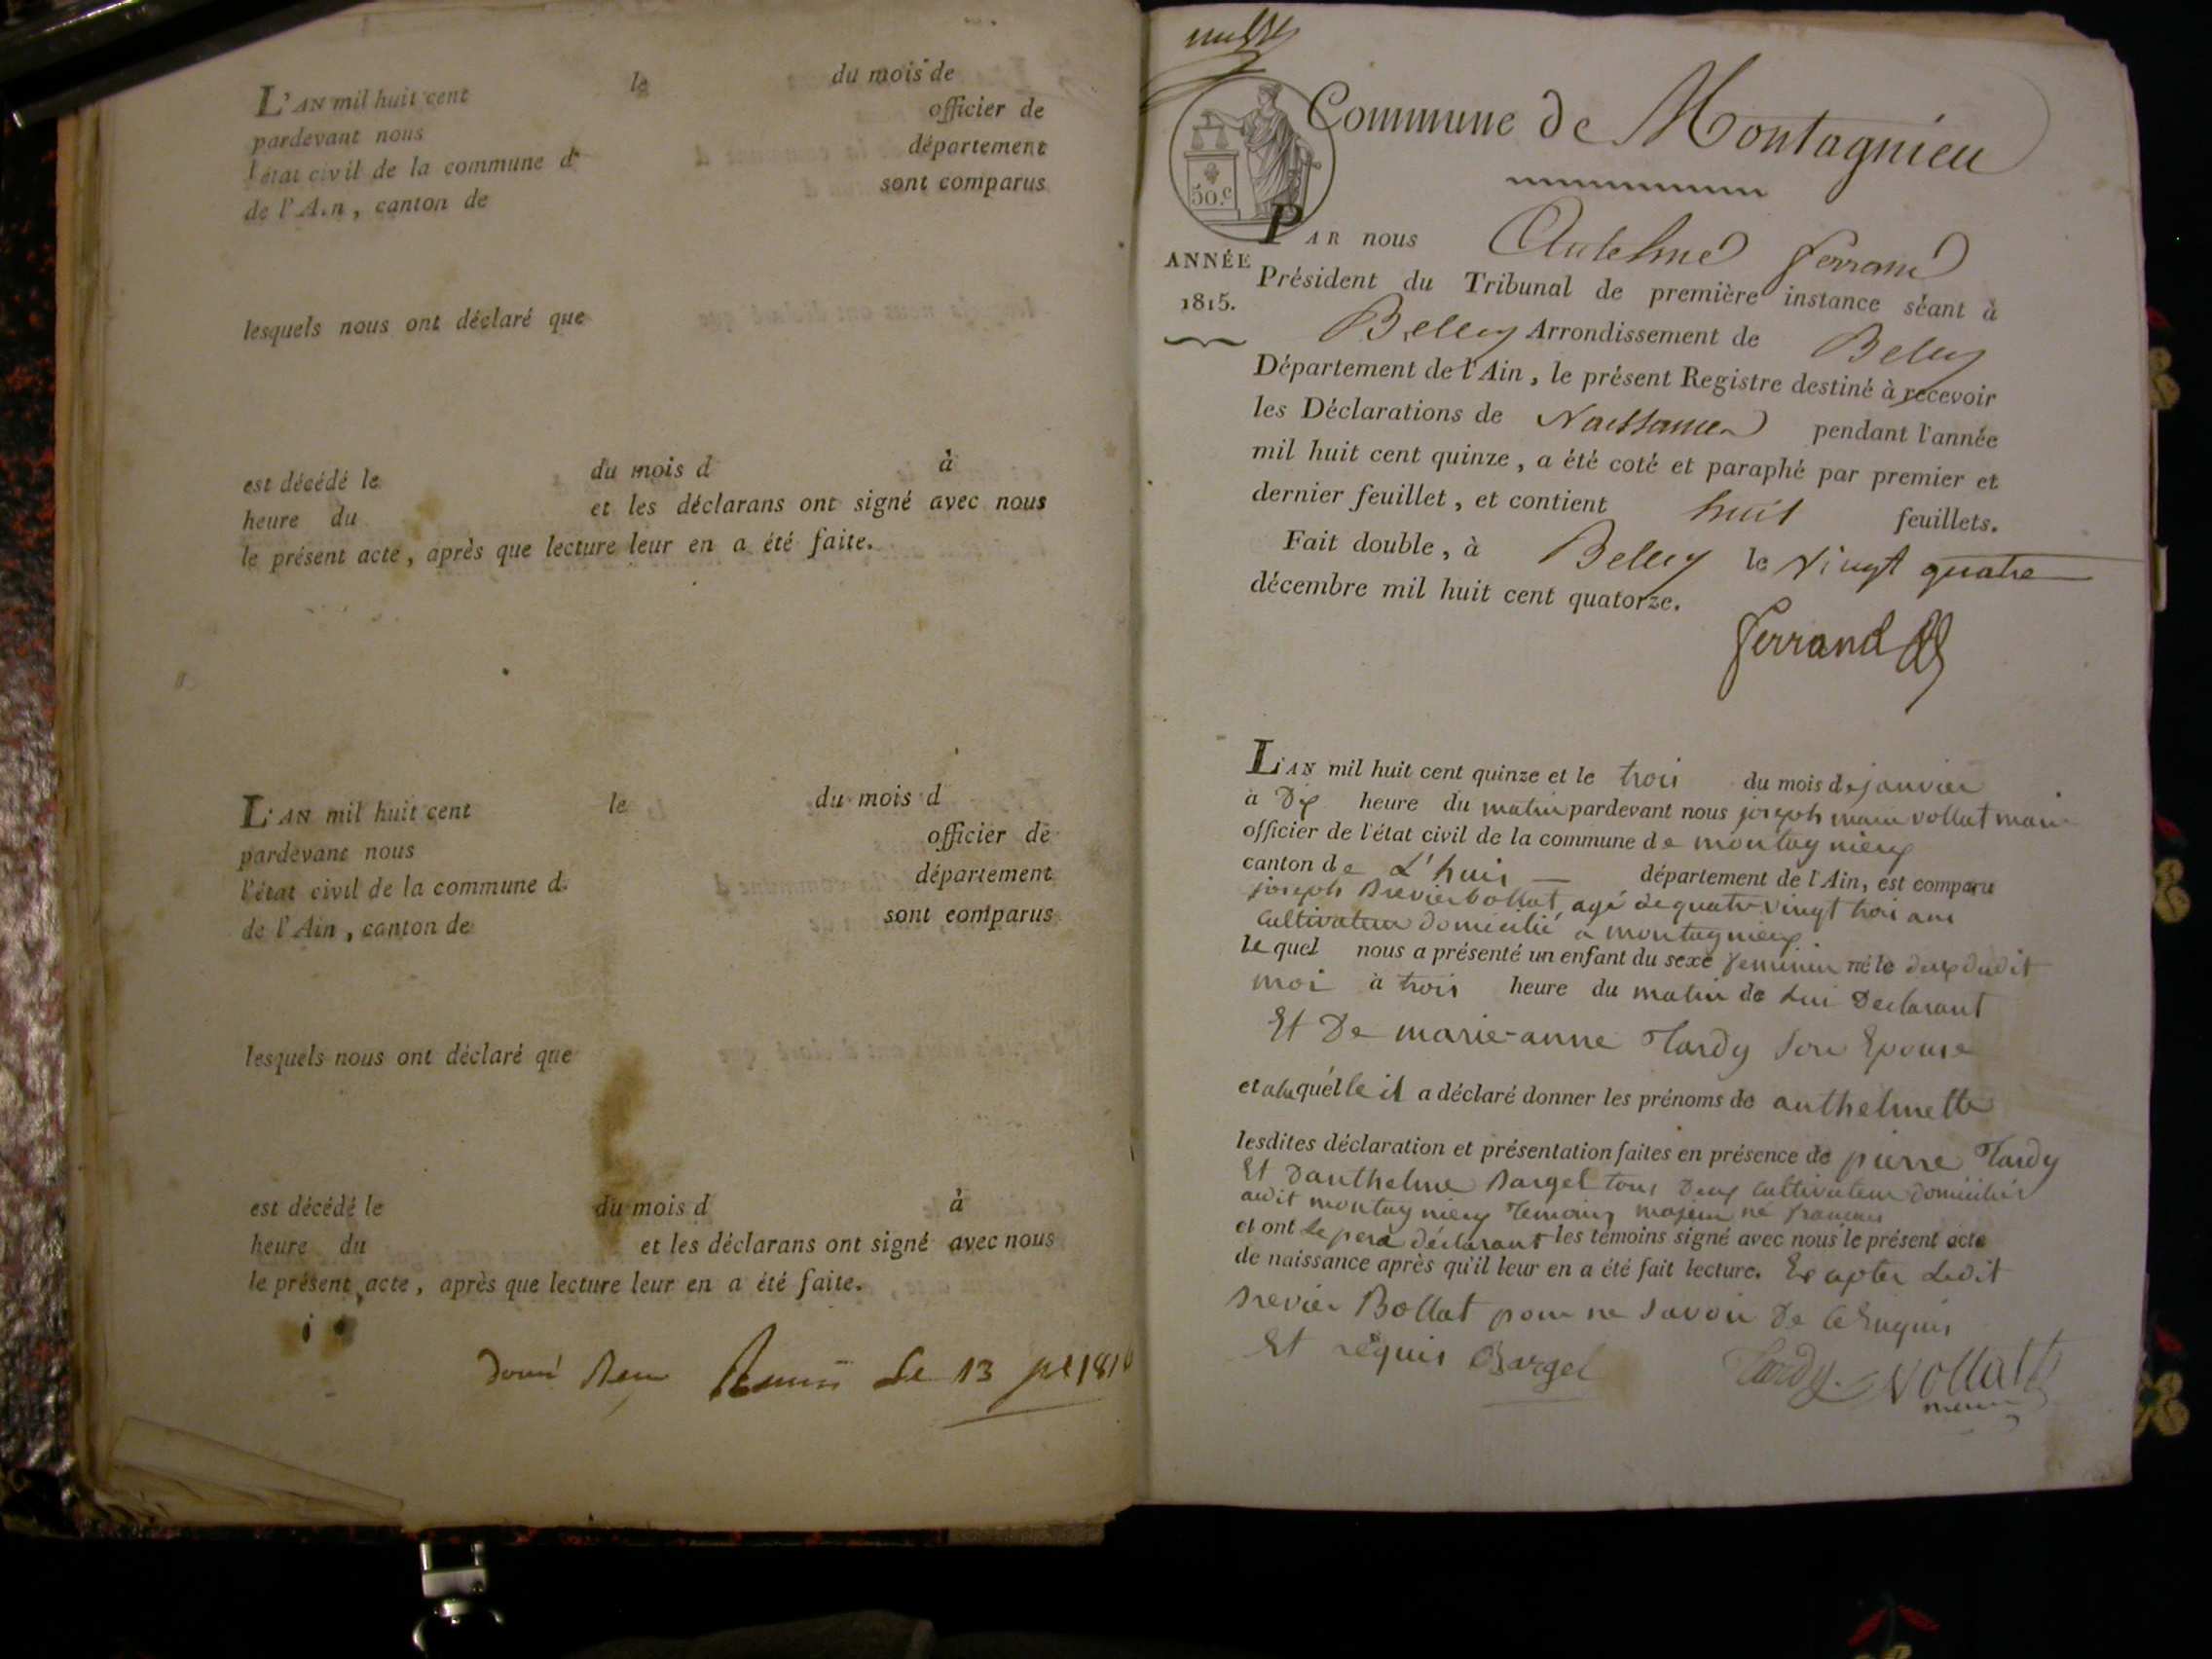 L'AN mil huit cent le du mois de
pardevant nous officier de
l'état civil de la commune d département
de l'Ain, canton de sont comparus
lesquels nous ont déclaré que
est décédé le du mois d à
heure du et les déclarans ont signé avec nous
le présent acte, après que lecture leur en a été faite.
L'AN mil huit cent le du mois d
pardevant nous officier de
l'état civil de la commune d département
de l'Ain, canton de sont comparus
lesquels nous ont déclaré que
est décédé le du mois d à
heure du et les déclarans ont signé avec nous
le présent acte, après que lecture leur en a été faite.
le 13
Commune de Montagnieu
50.c
ANNÉE
1815.
PAR nous Antelme Ferrand
Président du Tribunal de première instance séant à
Belley Arrondissement de Belley
Département de l'Ain, le présent Registre destiné à recevoir
les Déclarations de Naissances pendant l'année
mil huit cent quinze, a été coté et paraphé par premier et
dernier feuillet, et contient huit feuillets.
Fait double, à Belley le vingt quatre
décembre mil huit cent quatorze.
Ferrand
L'AN mil huit cent quinze et le trois du mois de janvier
à Dix heure du matin pardevant nous joseph marie vollat maire
officier de l'état civil de la commune de montagnieux
canton de L'huis département de l'Ain, est comparu
joseph Brevier bollat agé de quatre vingt trois ans
cultivateur domicilié a montagnieux
lequel nous a présenté un enfant du sexe feminin né le deux dudit
moi à trois heure du matin de Lui Declarant
Et De marie-anne Tardy son Epouse
et alaquélle il a déclaré donner les prénoms de anthelmette
lesdites déclaration et présentation faites en présence de pierre Tardy
Et Danthelme Bargel tous Deux cultivateur domiciliés
audit montagnieux Temoins majeur né francais
et ont Le pere déclarant les témoins signé avec nous le présent acte
de naissance après qu'il leur en a été fait lecture. Exapter Ledit
Brevier Bollat pour ne savoir De ce Enquis
Et réquis Bargel Tardy Vollat
maire